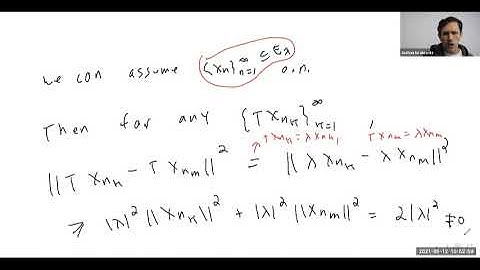 we can assume {x_n}_{n=1}^∞ ⊆ E_λ o.n.
Then for any {T x_{n_k}}_{k=1}^∞
T x_{n_k} = λ x_{n_k} T x_{n_m} = λ x_{n_m}
||T x_{n_k} - T x_{n_m}||² = ||λ x_{n_k} - λ x_{n_m}||²
= |λ|² ||x_{n_k}||² + |λ|² ||x_{n_m}||² = 2|λ|² ≠ 0